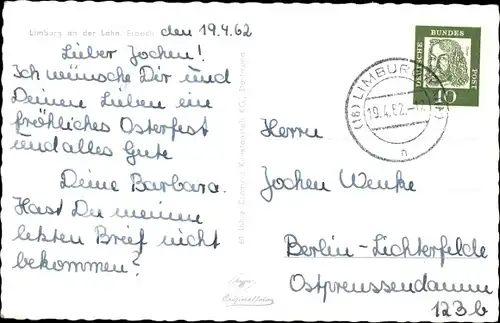 Limburg an der Lahn
den 19.4.62
Lieber Jochen!
Ich wünsche Dir und
Deinen Lieben ein
fröhliches Osterfest
und alles Gute
Deine Barbara.
Hast Du meinen
letzten Brief nicht
bekommen?
DEUTSCHE BUNDESPOST
10
(16) LIMBURG
19.4.62
n
Herrn
Jochen Wenke
Berlin-Lichterfelde
Ostpreussendamm
123b
Originalfoto